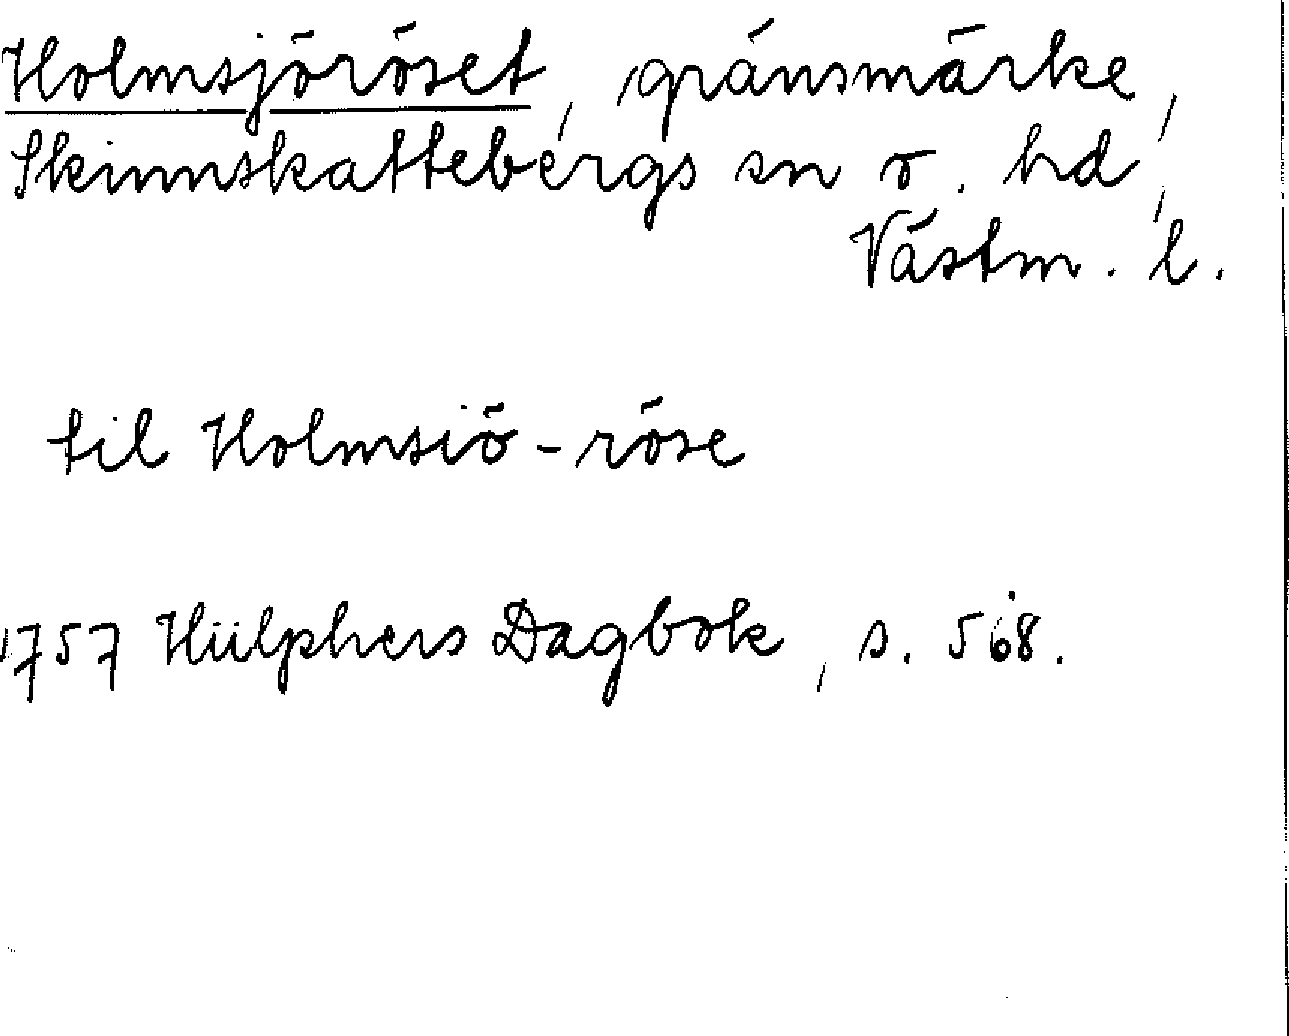 Holmsjöröset, gränsmärke,
Skinnskattebergs sn o. hd,
Västm. l.
til Holmsiö-röse
1757 Hülphers Dagbok, s. 568.